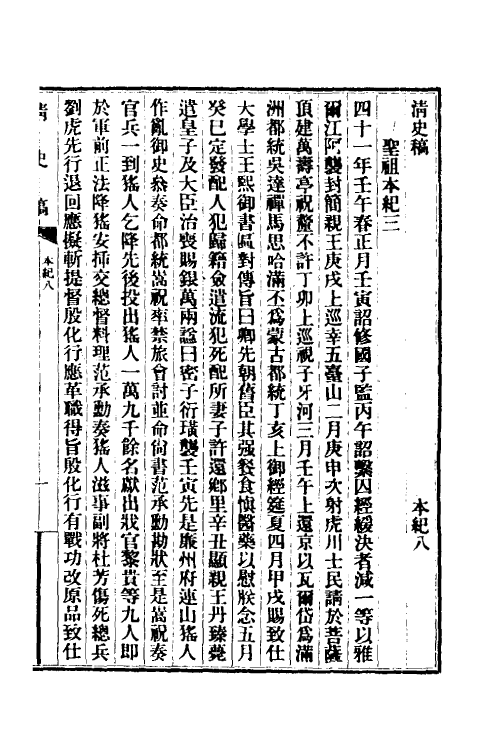 清史稿 本紀八
聖祖本紀三
四十一年壬午春正月壬寅詔修國子監丙午詔繫囚經緩決者減一等以雅
爾江阿襲封簡親王庚戌上巡幸五臺山二月庚申次射虎川士民請於菩薩
頂建萬壽亭祝釐不許丁卯上巡視子牙河三月壬午上還京以瓦爾岱為滿
洲都統吳達禪馬思哈滿丕為蒙古都統丁亥上御經筵夏四月甲戌賜致仕
大學士王熙御書匾對傳旨曰卿先朝舊臣其强餐食慎醫藥以慰朕念五月
癸巳定發配人犯歸籍僉遣流犯死配所妻子許還鄉里辛丑顯親王丹臻薨
遣皇子及大臣治喪賜銀萬兩諡曰密子衍璜襲壬寅先是廉州府連山猺人
作亂御史參奏命都統嵩祝率禁旅會討並命尙書范承勳勘狀至是嵩祝奏
官兵一到猺人乞降先後投出猺人一萬九千餘名獻出戕官黎貴等九人即
於軍前正法降猺安揷交總督料理范承勳奏猺人滋事副將杜芳傷死總兵
劉虎先行退回應擬斬提督殷化行應革職得旨殷化行有戰功改原品致仕
清史稿 本紀八 一